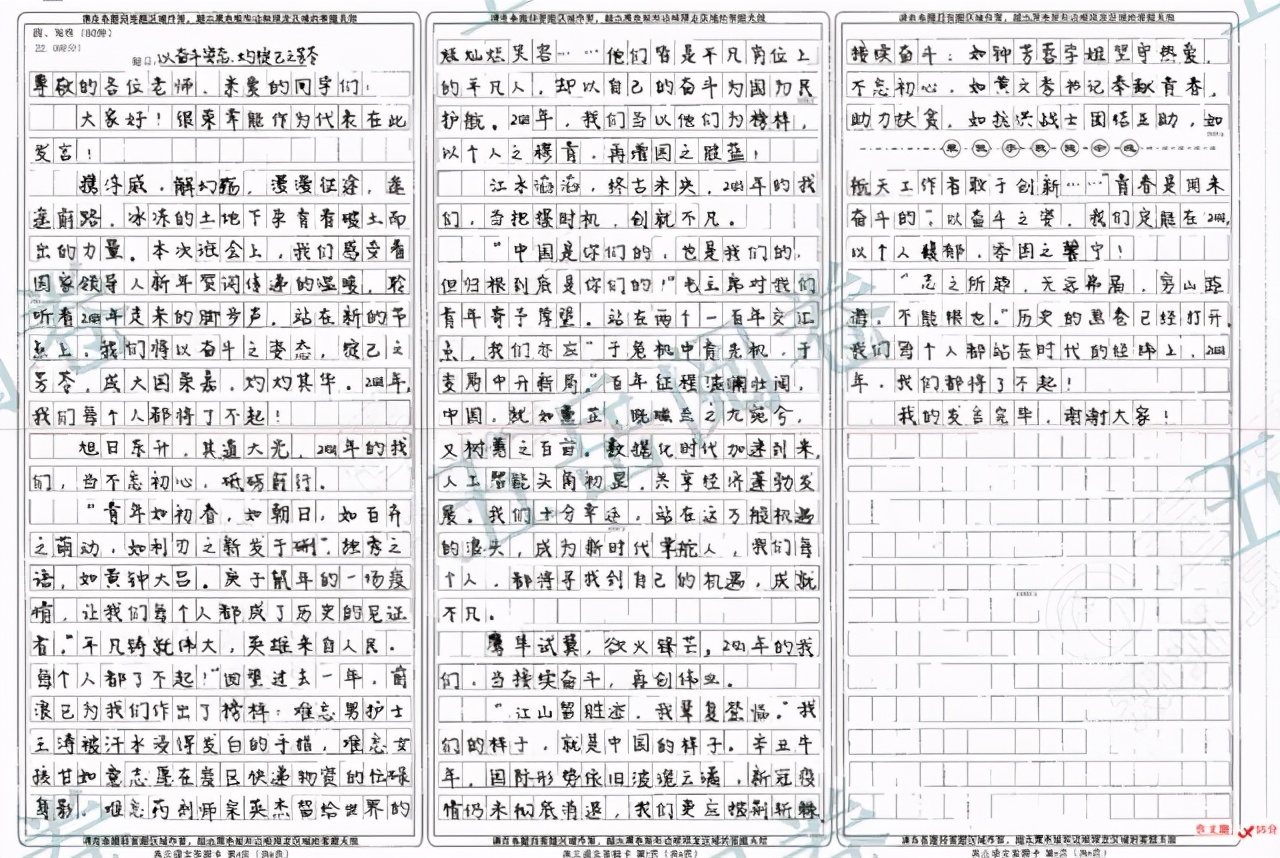 请在各题目的答题区域内作答,超出黑色矩形边框限定区域的答案无效
四、写作(60分)
22.(60分)
题目:以奋斗姿态,灼绽己之芳苓
尊敬的各位老师、亲爱的同学们:
大家好!很荣幸能作为代表在此
发言!
携浮威,解幻殇,漫漫征途,迢
迢前路。冰冻的土地下孕育着破土而
出的力量。本次班会上,我们感受着
国家领导人新年贺词传递的温暖,聆
听着2021年走来的脚步声。站在新的节
点上,我们将以奋斗之姿态,绽己之
芳苓,成大国荣嘉,灼灼其华。2021年,
我们每个人都将了不起!
旭日东升,其道大光,2021年的我
们,当不忘初心,砥砺前行。
“青年如初春,如朝日,如百卉
之萌动,如利刃之新发于硎”,独秀之
语,如黄钟大吕。庚子鼠年的一场疫
情,让我们每个人都成了历史的见证
者。“平凡铸就伟大,英雄来自人民。
每个人都了不起!”回望过去一年,前
浪已为我们作出了榜样:难忘男护士
王涛被汗水浸得发白的手指,难忘女
孩甘如意志愿在
快递物资的忙碌
身影。难忘药剂师宋英杰留给世界的
请在各题目的答题区域内作答,超出黑色矩形边框限定区域的答案无效
请在各题目的答题区域内作答,超出黑色矩形边框限定区域的答案无效
灿烂笑容……他们皆是平凡岗位上
的平凡人,却以自己的奋斗为国为民
护航。2021年,我们当以他们为榜样,
以个人之穆青,再增国之胜蓝!
江水滔滔,终古未央,2021年的我
们,当把握时机,创就不凡。
“中国是你们的,也是我们的,
但归根到底是你们的!”毛主席对我们
青年寄予厚望。站在两个一百年交汇
点,我们亦应“于危机中育先机,于
变局中开新局。”百年征程波澜壮阔,
中国,就如灵正,既滋兰之九宛兮,
又树蕙之百亩。数据化时代加速到来,
人工智能头角初显,共享经济蓬勃发
展。我们十分幸运,站在这万般机遇
的浪头,成为新时代掌舵人,我们每
个人,都将寻找到自己的机遇,成就
不凡。
鹰隼试翼,欲火锋芒,2021年的我
们,当接续奋斗,再创伟业。
“江山留胜迹,我辈复登临。”我
们的样子,就是中国的样子。辛丑牛
年,国际形势依旧波诡云谲,新冠疫
情仍未彻底消退,我们更应披荆斩棘,
请在各题目的答题区域内作答,超出黑色矩形边框限定区域的答案无效
请在各题目的答题区域内作答,超出黑色矩形边框限定区域的答案无效
接续奋斗:如钟芳蓉学姐坚守热爱,
不忘初心,如黄文秀书记奉献青春,
助力扶贫,如抗洪战士团结互助,如
航天工作者敢于创新……“青春是用来
奋斗的”,以奋斗之姿,我们定能在2021,
以个人馥郁,秀国之馨宁!
“志之所趋,无远弗届,穷山距
海,不能限也。”历史的画卷已经打开,
我们每个人都站在时代的经纬上,2021
年,我们都将了不起!
我的发言完毕,谢谢大家!
请在各题目的答题区域内作答,超出黑色矩形边框限定区域的答案无效
五岳阅卷
55分